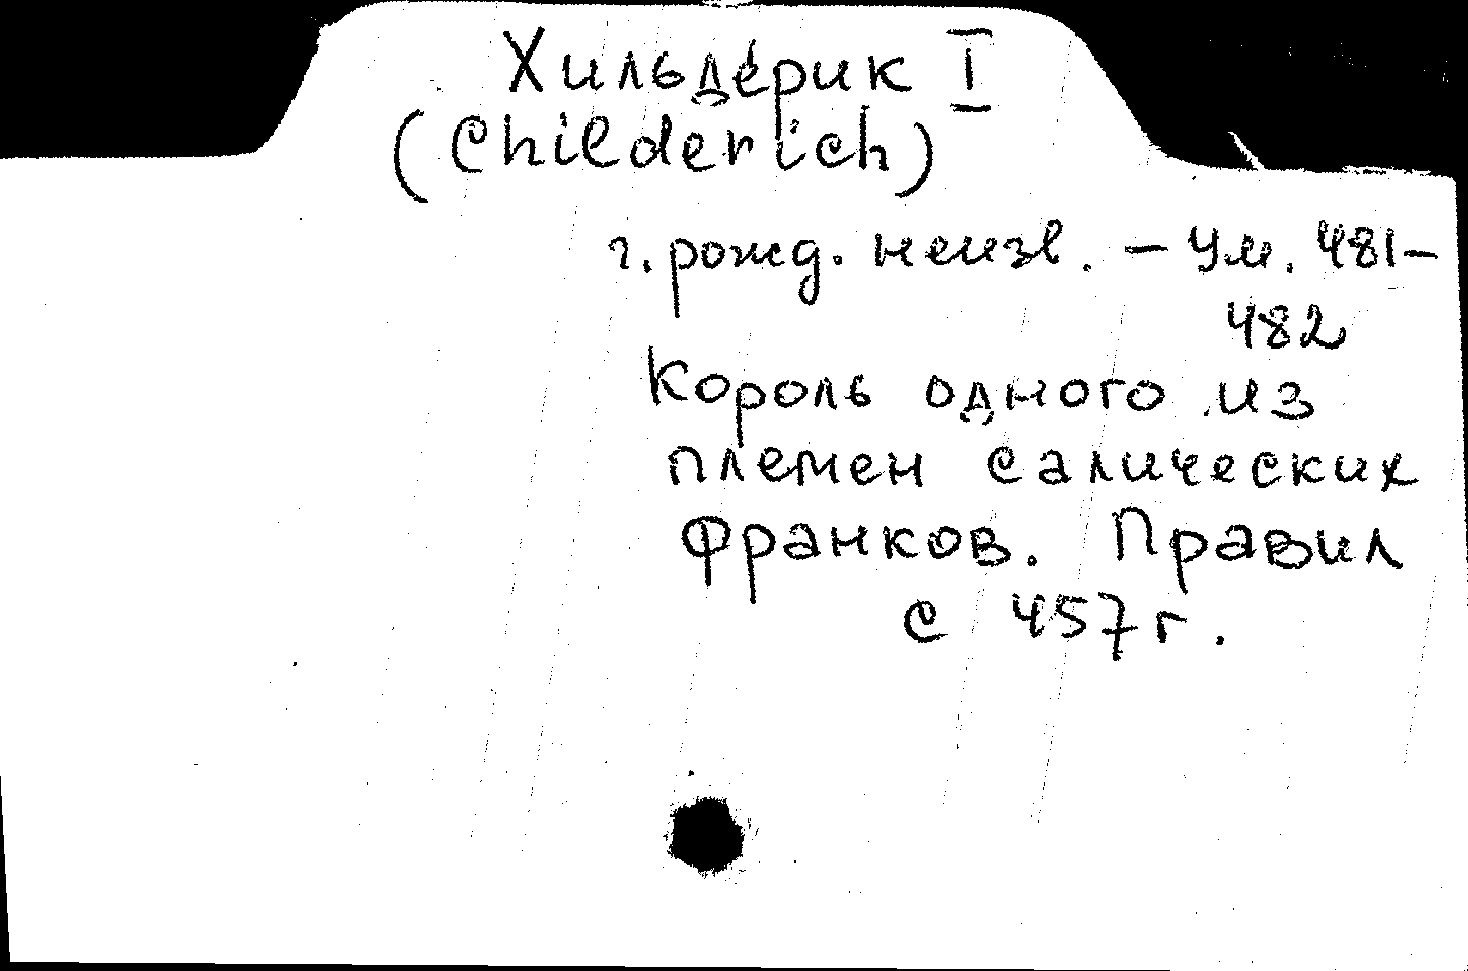 Хильдерик I
(Childerich)
г. рожд. неизв. – Ум. 481–
482
Король одного из
племен салических
франков. Правил
с 457 г.